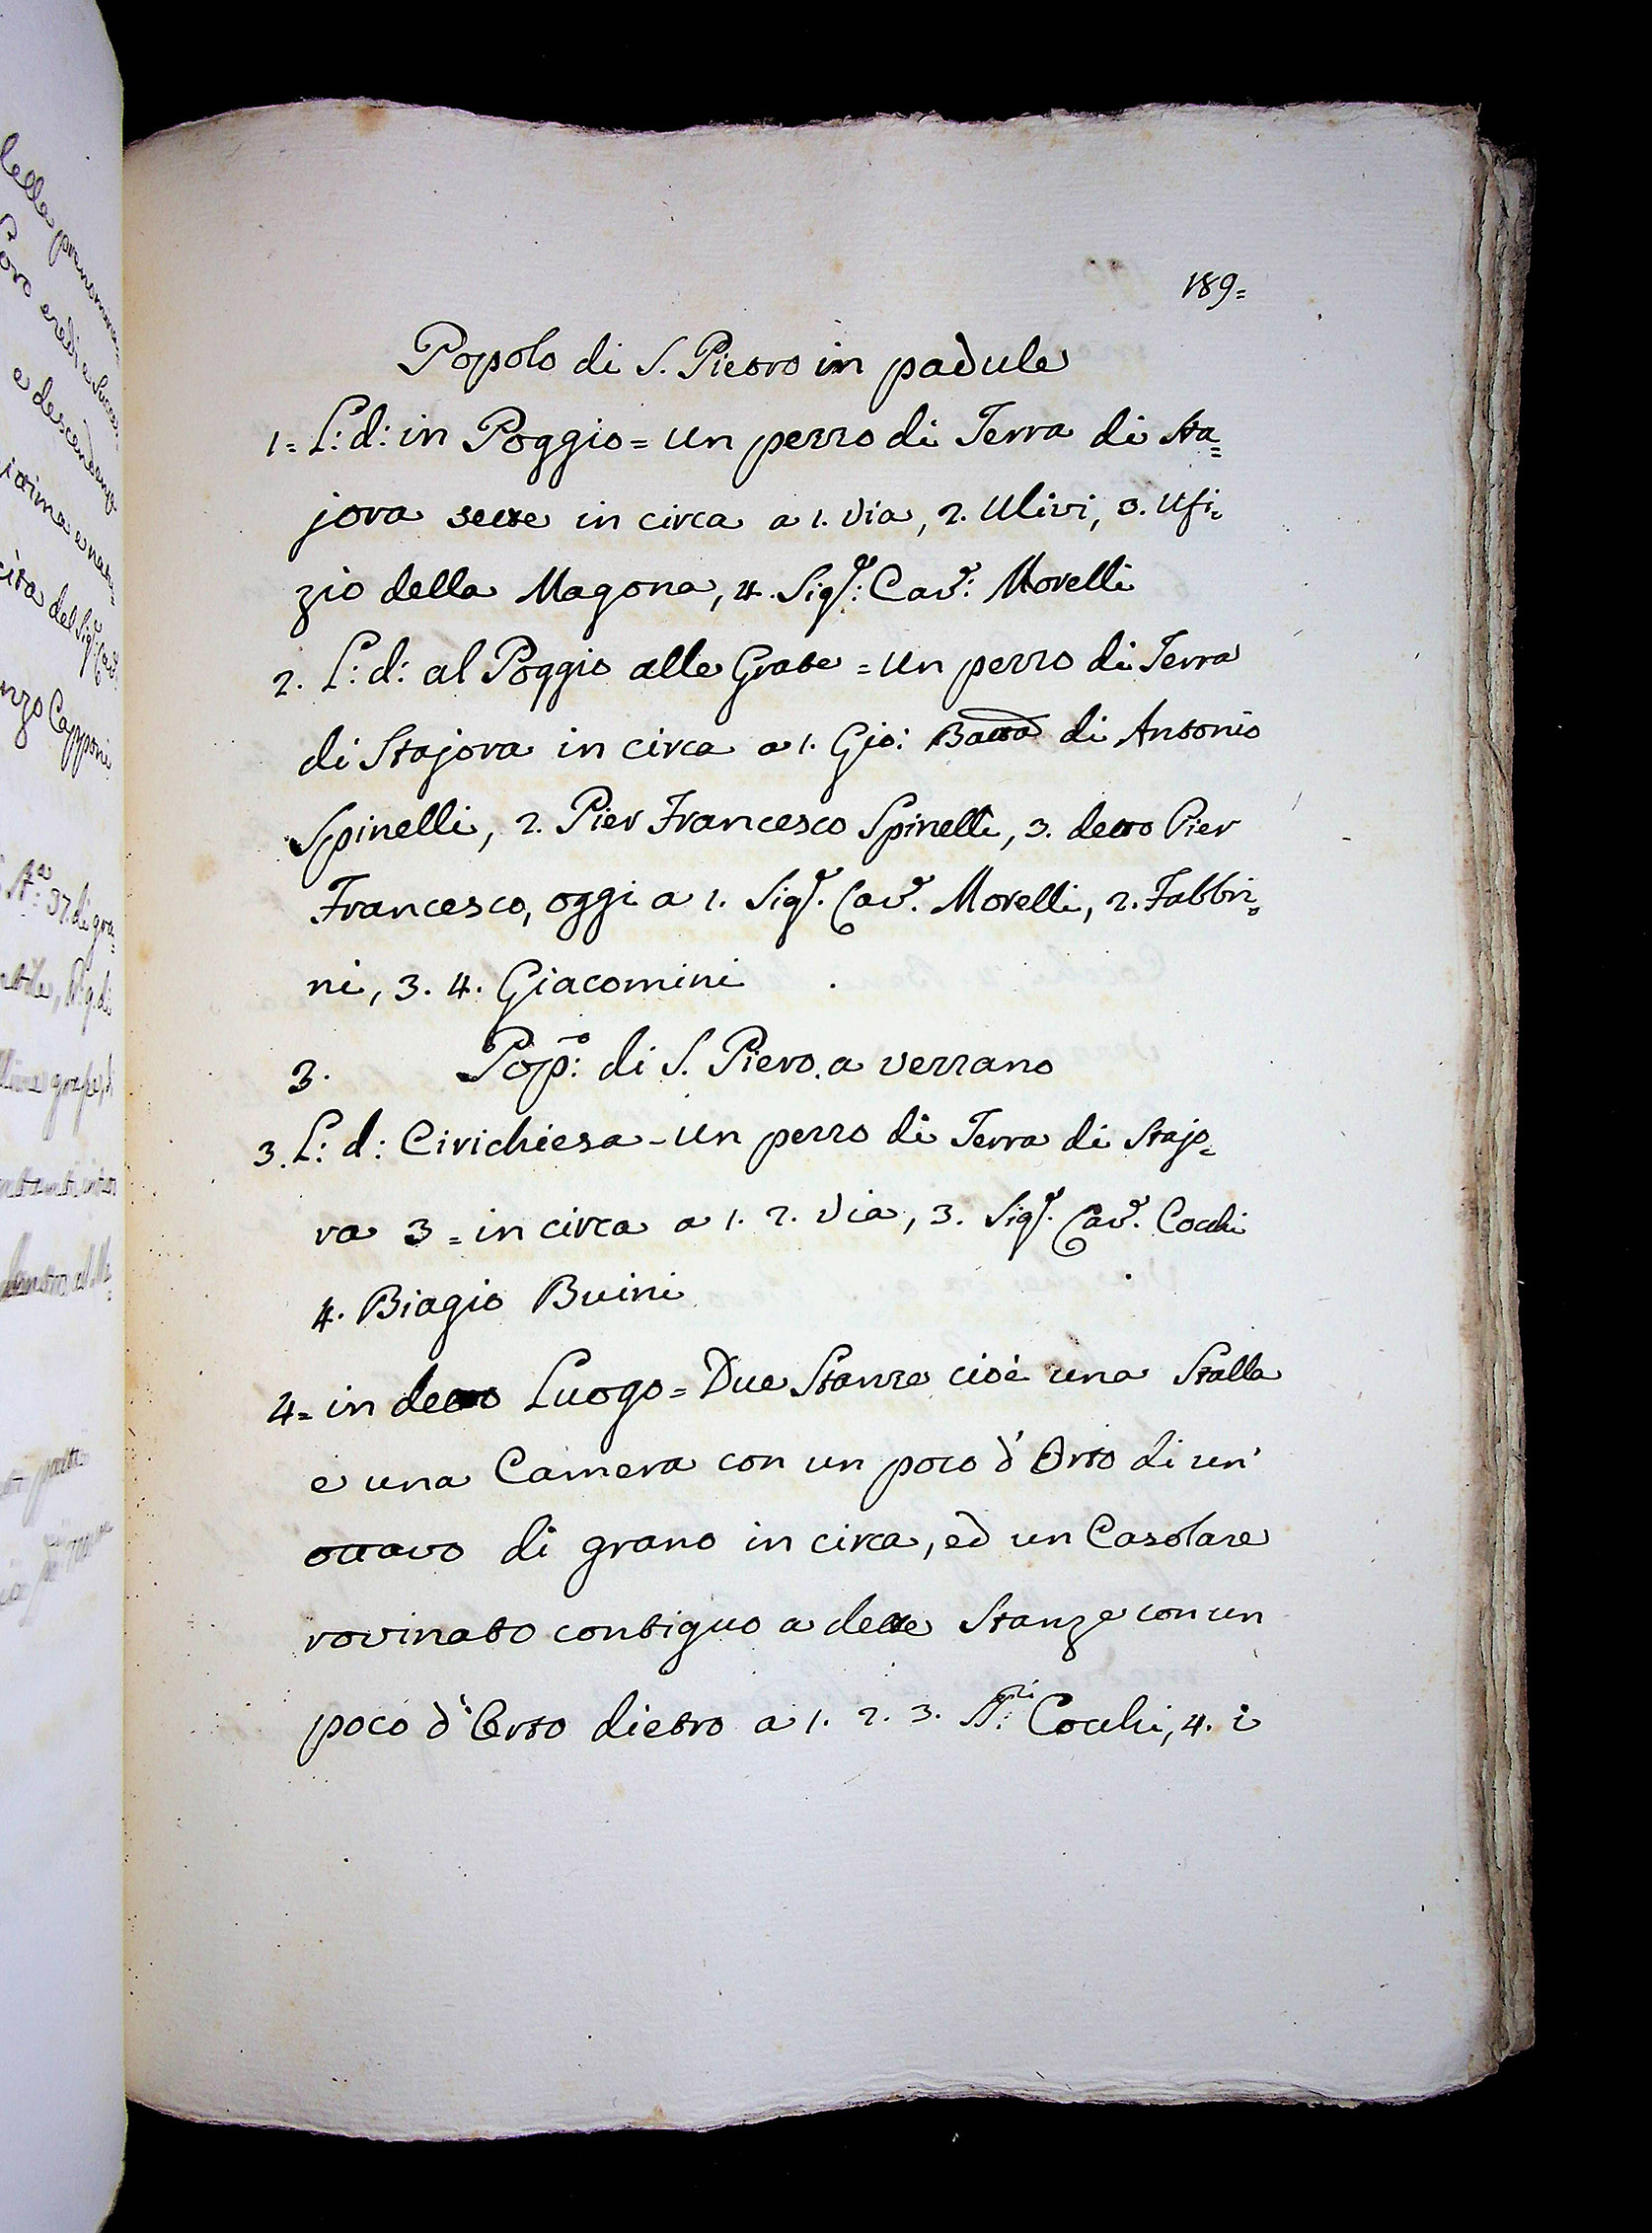 189=
Popolo di S. Pietro in padule
1= L: d: in Poggio = un pezzo di Terra di sta=
jora sette in circa a 1. Via, 2. Ulivi, 3. Ufi=
zio della Magona, 4. Sig.r: Cav.r: Morelli
2. L: d: al Poggio alle Grate = un pezzo di Terra
di Stajora in circa a 1. Gio: Batta di Antonio
Spinelli, 2. Pier Francesco Spinelli, 3. detto Pier
Francesco, oggi a 1. Sig.r. Cav.r. Morelli, 2. Fabbri=
ni, 3. 4. Giacomini
3. Pop.o: di S. Piero a verzano
3. L: d: Cirichiesa - un pezzo di Terra di Stajo=
ra 3 = in circa a 1. 2. Via, 3. Sig.r. Cav.r. Cocchi
4. Biagio Buini
4= in detto Luogo = Due Stanze cioè una Stalla
e una Camera con un poco d'Orto di un'
ottavo di grano in circa, ed un Casolare
rovinato contiguo a dette Stanze con un
poco d'Orto dietro a 1. 2. 3. Cocchi, 4. i